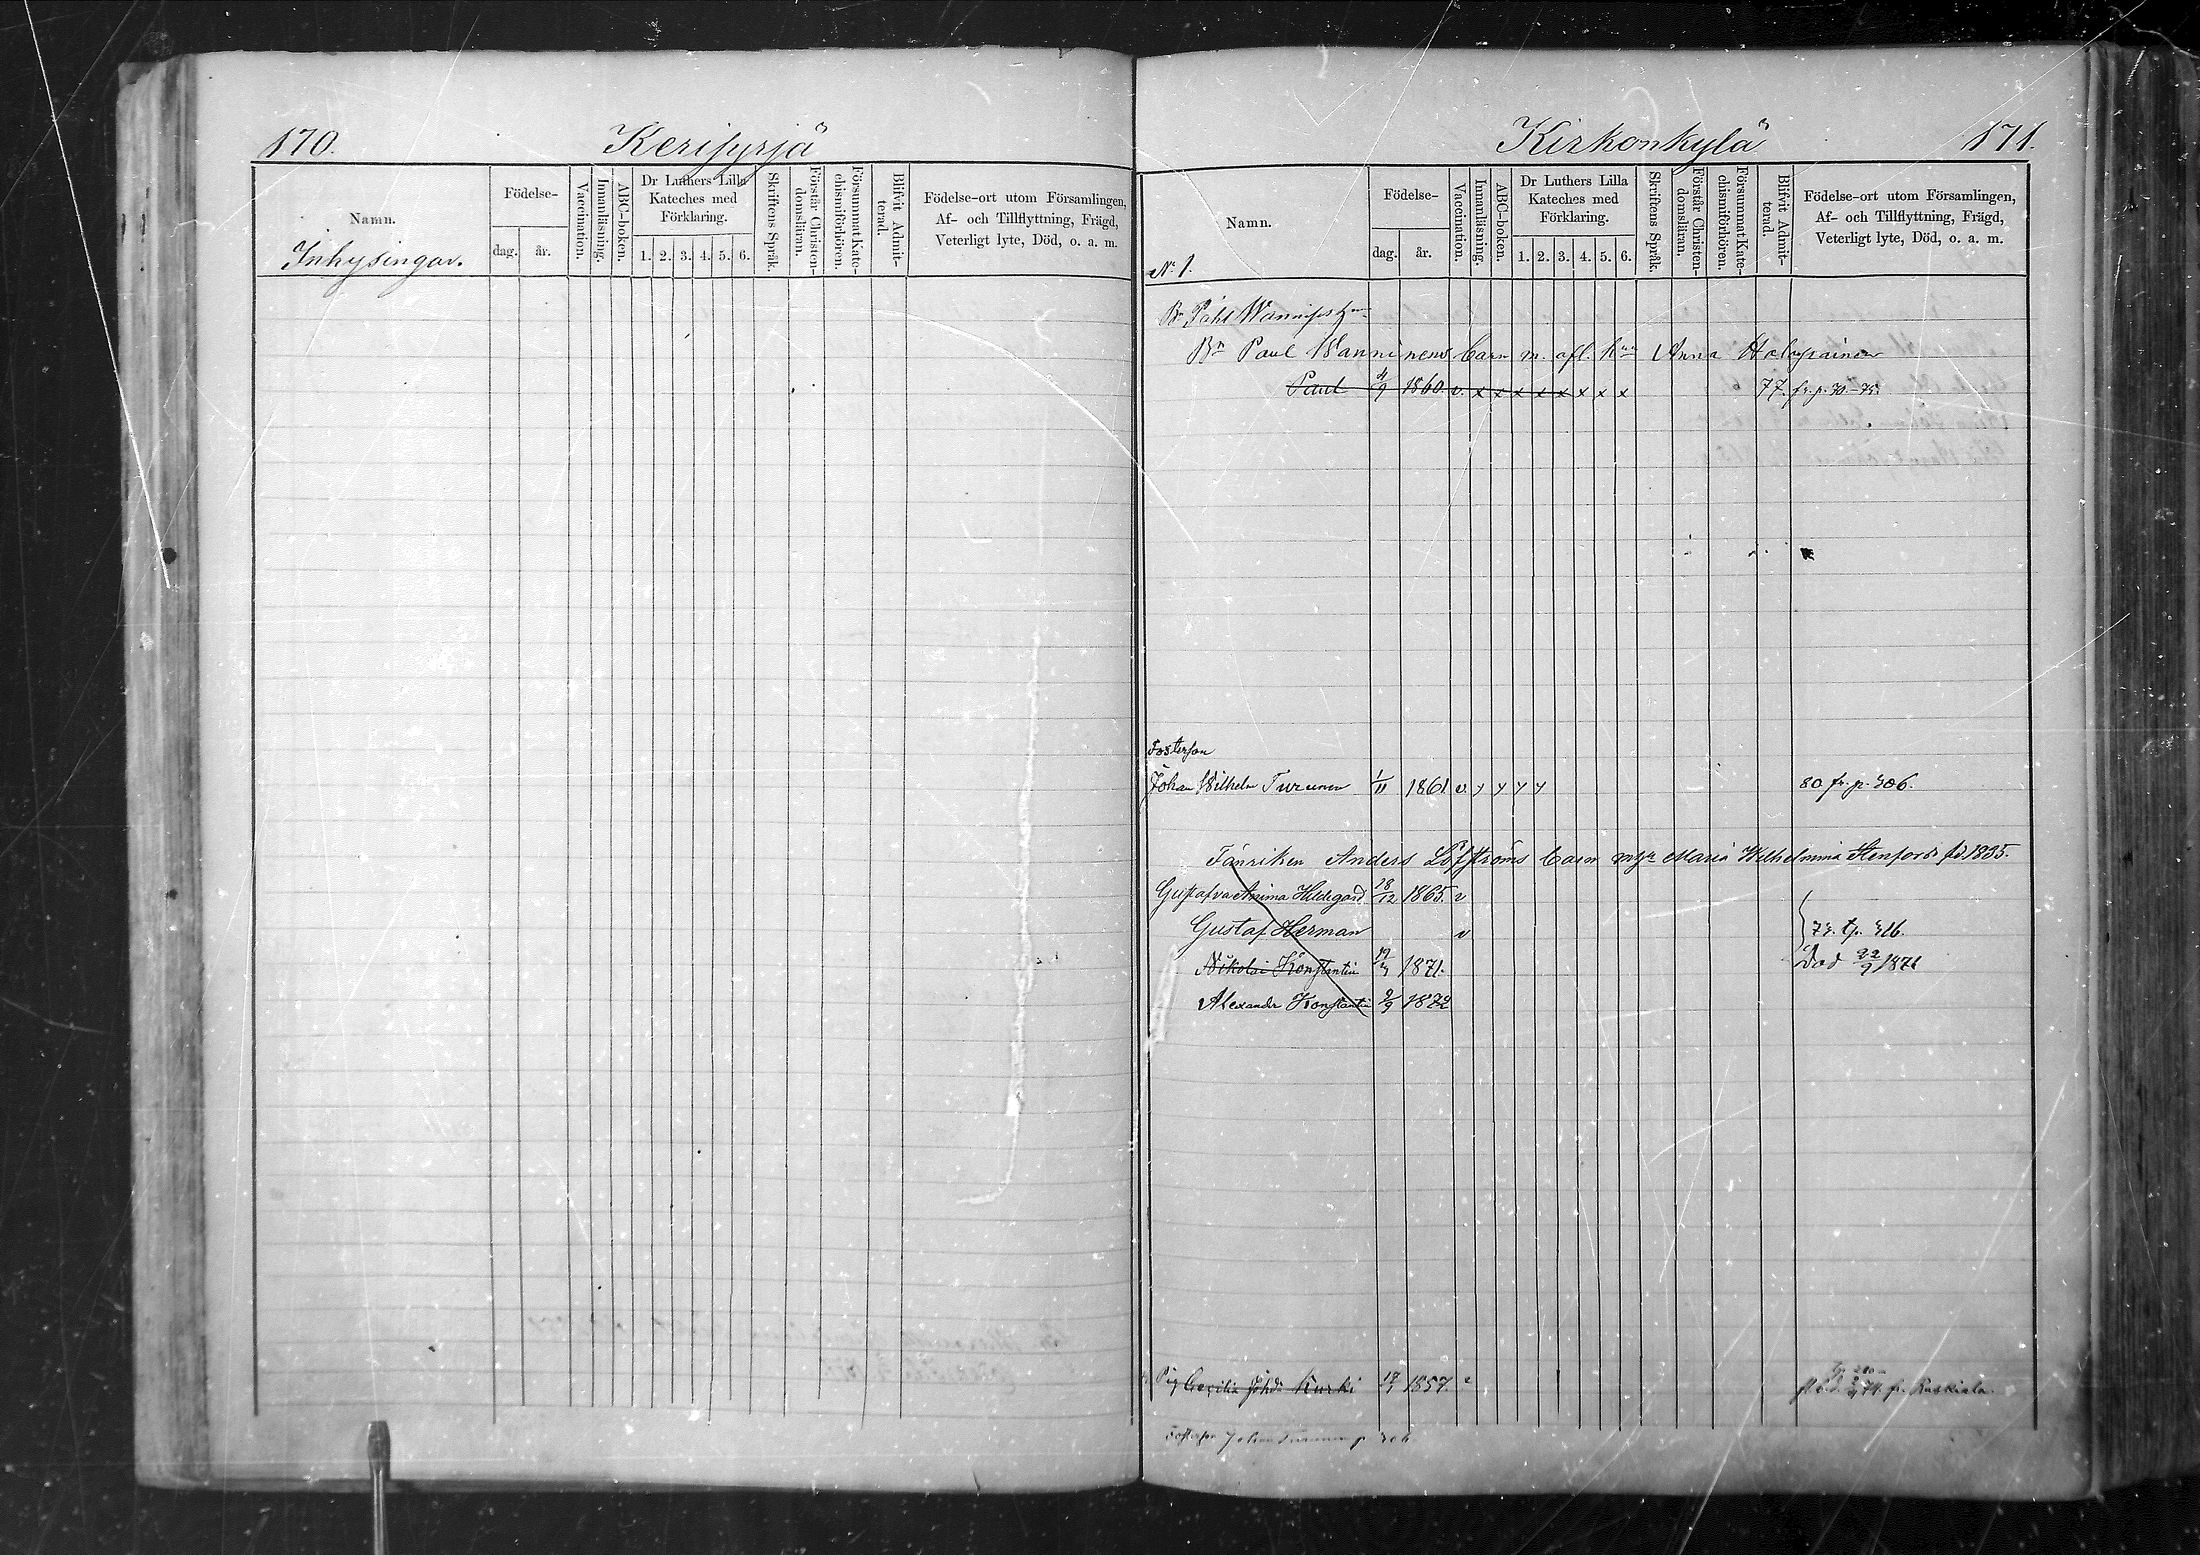 170.
Kerisyrjä
Namn.
Inhysingar.
Födelse-
dag.
år.
Vaccination.
Innanläsning.
ABC-boken.
Dr Luthers Lilla
Kateches med
Förklaring.
1. 2. 3. 4. 5. 6.
Skriftens Språk.
Förstår Christen-
domsläran.
Försummat Kate-
chismiförhören.
Blifvit Admit-
terad.
Födelse-ort utom Församlingen,
Af- och Tillflyttning, Frägd,
Veterligt lyte, Död, o. a. m.
Kirkonkylä
171.
Namn.
N:o 1.
Födelse-
dag.
år.
Vaccination.
Innanläsning.
ABC-boken.
Dr Luthers Lilla
Kateches med
Förklaring.
1. 2. 3. 4. 5. 6.
Skriftens Språk.
Förstår Christen-
domsläran.
Försummat Kate-
chismiförhören.
Blifvit Admit-
terad.
Födelse-ort utom Församlingen,
Af- och Tillflyttning, Frägd,
Veterligt lyte, Död, o. a. m.
Bn Påhl
Bn Paul Wanninens barn m. afl. hun Anna Holopainen
Paul 4/9 1860. v. x x x x x x x x 77. fr. p. 30.-75.
Fosterson
Johan Wilhelm Turunen 1/11 1861 v. y y y y 80 fr. p. 306.
Fänriken Anders Löfströms barn m Maria Wilhelmina Stenfors fd 1835.
Gustafva Amma Hildegard 18/12 1865. v
Gustaf Herman v 73. tp. 316.
Nikolai Konstantin 1871. Död 22/9 1871
Alexander Konstantin 9/9 1872
Pig Cecilia Johds Kurki 17/1 1857. v 74. fr. Ruskiala.
Fosterson Johan Turunen p. 306